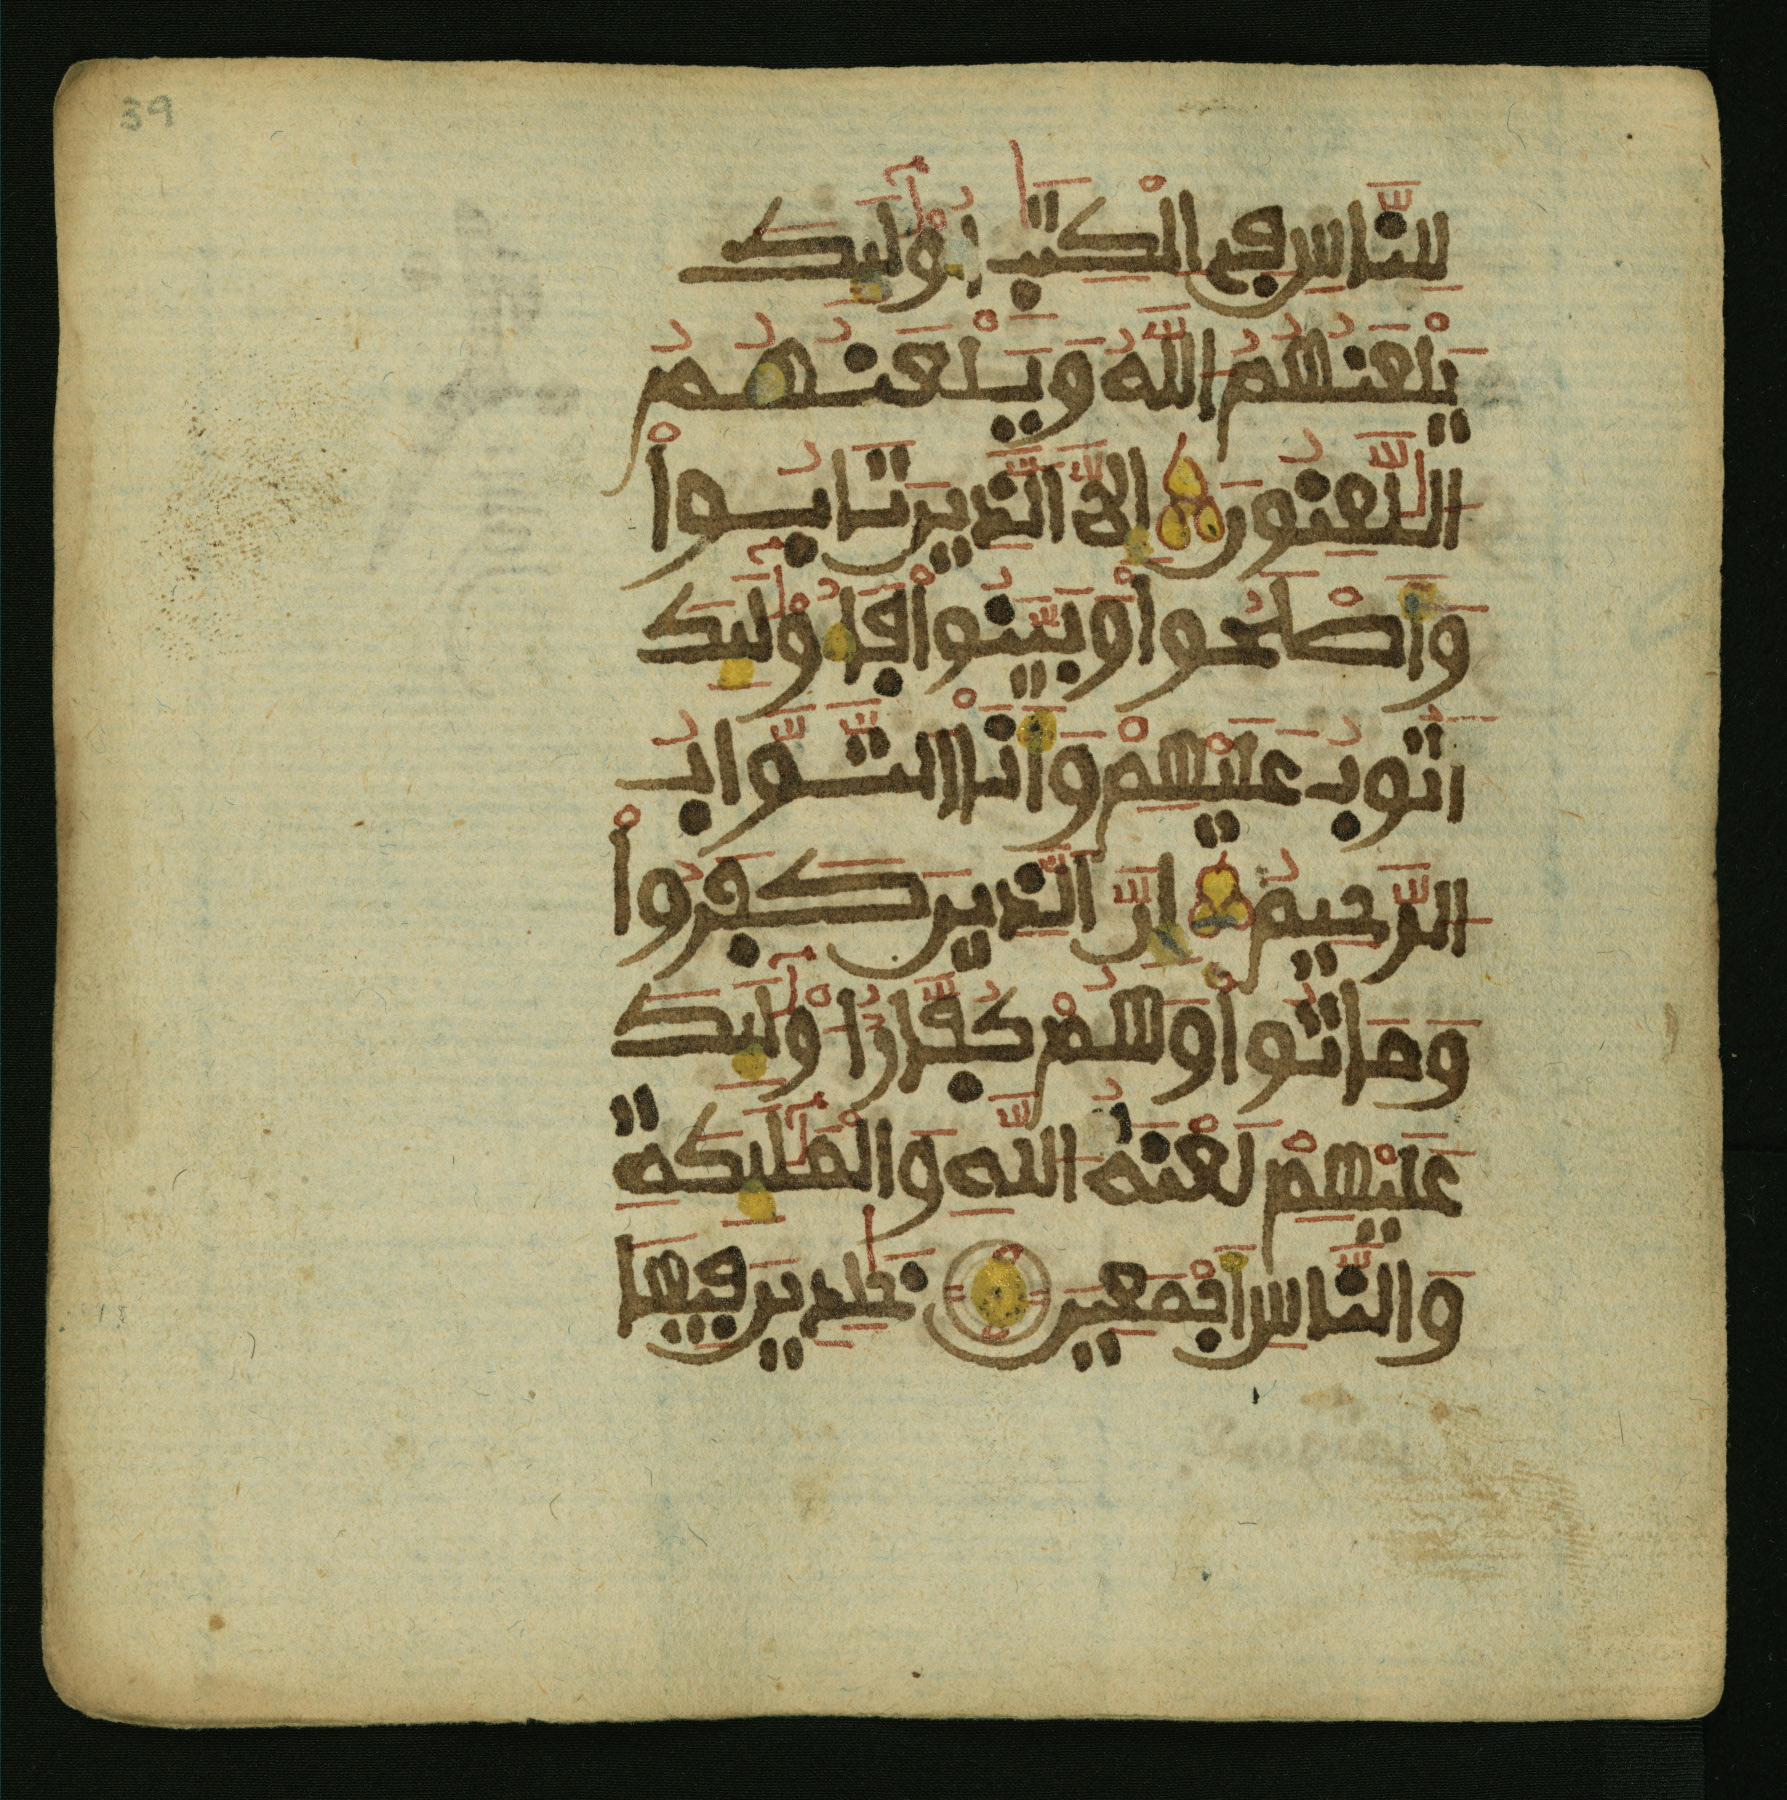 39
للنَّاسِ فِي الْكِتَٰبِ أُوْلَٰٓئِكَ
يَلْعَنُهُمُ اللَّهُ وَيَلْعَنُهُمُ
اللَّٰعِنُونَ إِلَّا الَّذِينَ تَابُواْ
وَأَصْلَحُواْ وَبَيَّنُواْ فَأُوْلَٰٓئِكَ
أَتُوبُ عَلَيْهِمْ وَأَنَا التَّوَّابُ
الرَّحِيمُ إِنَّ الَّذِينَ كَفَرُواْ
وَمَاتُواْ وَهُمْ كُفَّارٌ اُوْلَٰٓئِكَ
عَلَيْهِمْ لَعْنَةُ اللَّهِ وَالْمَلَٰٓئِكَةِ
وَالنَّاسِ أَجْمَعِينَ خَٰلِدِينَ فِيهَا